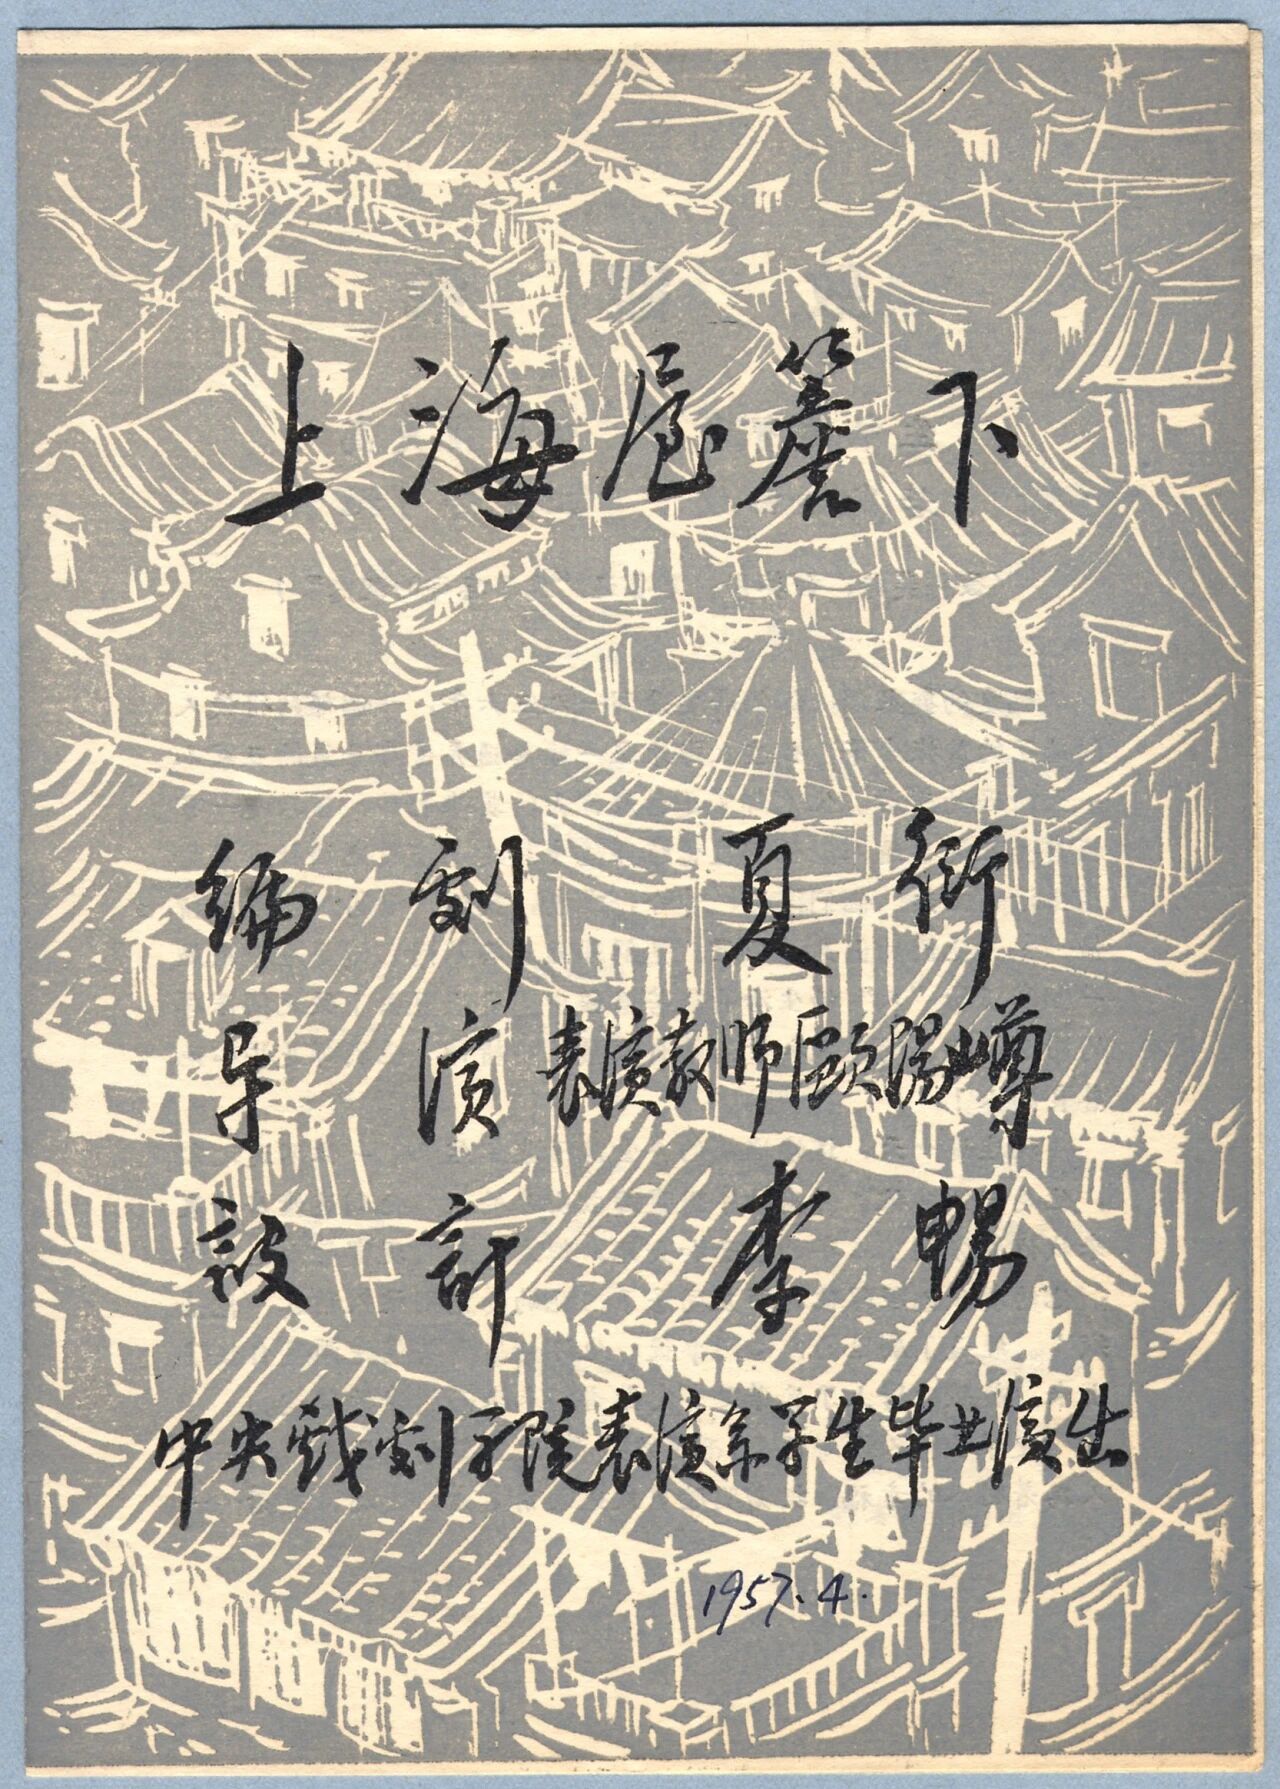 上海屋簷下
编剧 夏衍
导演 表演教师歐陽山尊
設計 李暢
中央戏剧学院表演系学生毕业演出
1957.4.